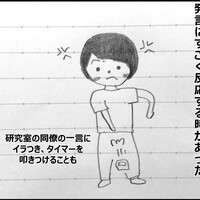 発言にすごく反応する時があった
研究室の同僚の一言に
イラつき、タイマーを
叩きつけることも